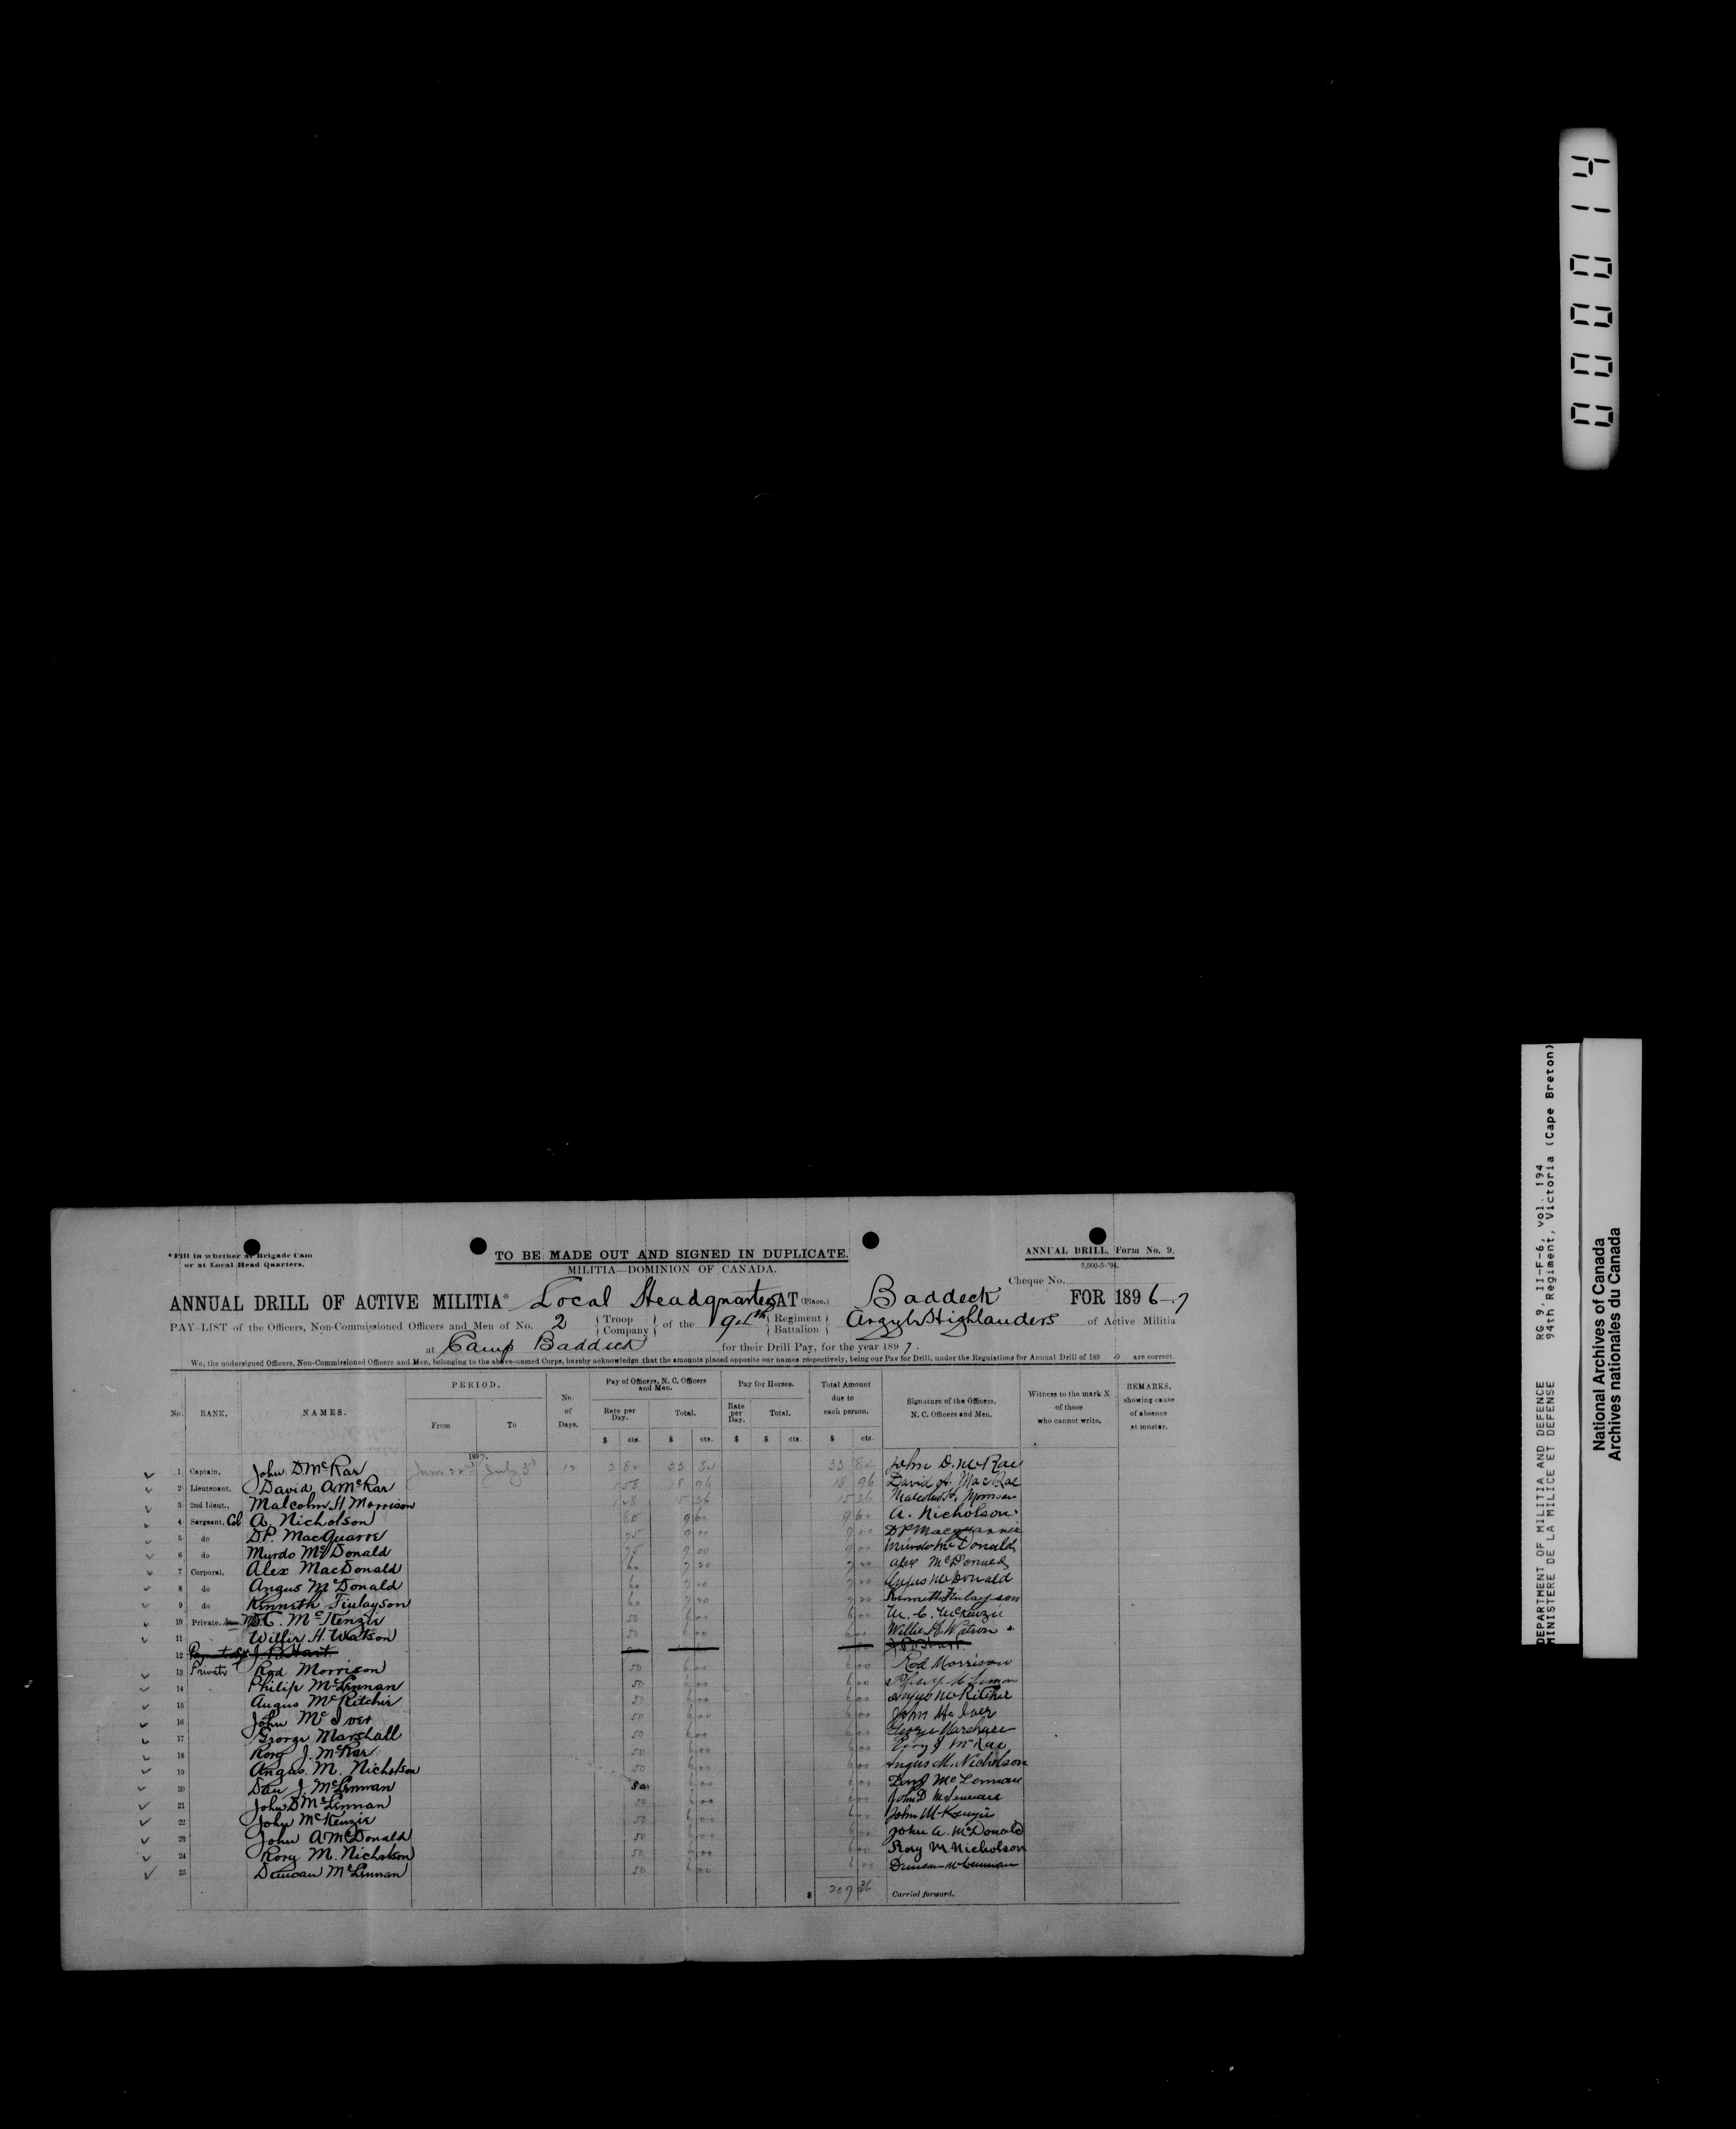 410000
* Fill in whether at Brigade Cam
or at Local Head Quarters.
TO BE MADE OUT AND SIGNED IN DUPLICATE.
MILITIA—DOMINION OF CANADA.
ANNUAL DRILL, Form No. 9.
5,000-5-'94.
Cheque No.
ANNUAL DRILL OF ACTIVE MILITIA* Local Headquarters AT (Place.) Baddeck FOR 1896-7
PAY-LIST of the Officers, Non-Commissioned Officers and Men of No. 2 { Troop Company } of the 94th { Regiment Battalion } Argyle Highlanders of Active Militia
at Camp Baddeck for their Drill Pay, for the year 1897.
We, the undersigned Officers, Non-Commissioned Officers and Men, belonging to the above-named Corps, hereby acknowledge that the amounts placed opposite our names respectively, being our Pay for Drill, under the Regulations for Annual Drill of 189 -9 are correct.
No. RANK. NAMES. PERIOD. From To No. of Days. Pay of Officers, N. C. Officers and Men. Rate per Day. Total. Pay for Horses. Rate per Day. Total. Total Amount due to each person. Signature of the Officers, N. C. Officers and Men. Witness to the mark X of those who cannot write. REMARKS, showing cause of absence at muster.
$ cts. $ cts. $ $ cts. $ cts.
1897.
1 Captain, John D McRae June 22nd July 3d 12 2 82 33 84 33 84 John D. McRae
2 Lieutenant, David A McRae 1 58 18 96 18 96 David A. MacRae
3 2nd Lieut., Malcolm H Morrison 1 28 15 36 15 36 Malcolm H. Morrison
4 Sergeant, Col A. Nicholson 80 9 60 9 60 A. Nicholson
5 do D.P. MacQuarrie 75 9 00 9 00 D P Macquarrie
6 do Murdo McDonald 75 9 00 9 00 Murdo McDonald
7 Corporal, Alex MacDonald 60 7 20 7 20 Alex McDonald
8 do Angus McDonald 60 7 20 7 20 Angus McDonald
9 do Kenneth Finlayson 60 7 20 7 20 Kenneth Finlayson
10 Private, M.C. McKenzie 50 6 00 6 00 M. C. McKenzie
11 Willie H. Watson 50 6 00 6 00 Willie H. Watson
12 J. P. Hart
13 Private Rod Morrison 50 6 00 6 00 Rod Morrison
14 Philip McLennan 50 6 00 6 00
15 Angus McRitchie 50 6 00 6 00 Angus McRitchie
16 John McIver 50 6 00 6 00 John McIver
17 George Marshall 50 6 00 6 00 George Marshall
18 Rory J. McRae 50 6 00 6 00 Rory J McRae
19 Angus M. Nicholson 50 6 00 6 00 Angus M. Nicholson
20 Dan J. McLennan 50 6 00 6 00 Dan J McLennan
21 John D McLennan 50 6 00 6 00 John D McLennan
22 John McKenzie 50 6 00 6 00 John McKenzie
23 John A McDonald 50 6 00 6 00 John A. McDonald
24 Rory M. Nicholson 50 6 00 6 00 Rory M Nicholson
25 Duncan McLennan 50 6 00 6 00 Duncan McLennan
$ 207 36 Carried forward.
DEPARTMENT OF MILITIA AND DEFENCE RG 9, II-F-6, vol. 194
MINISTERE DE LA MILICE ET DEFENSE 94th Regiment, Victoria (Cape Breton)
National Archives of Canada
Archives nationales du Canada